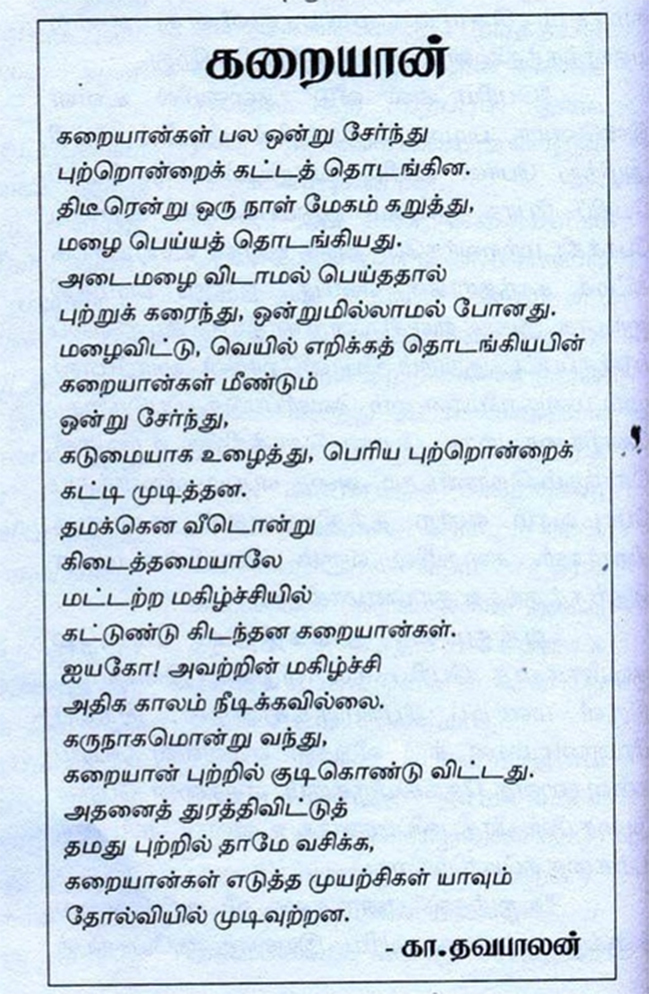 கறையான்
கறையான்கள் பல ஒன்று சேர்ந்து
புற்றொன்றைக் கட்டத் தொடங்கின.
திடீரென்று ஒரு நாள் மேகம் கறுத்து,
மழை பெய்யத் தொடங்கியது.
அடைமழை விடாமல் பெய்ததால்
புற்றுக் கரைந்து, ஒன்றுமில்லாமல் போனது.
மழைவிட்டு, வெயில் எறிக்கத் தொடங்கியபின்
கறையான்கள் மீண்டும்
ஒன்று சேர்ந்து,
கடுமையாக உழைத்து, பெரிய புற்றொன்றைக்
கட்டி முடித்தன.
தமக்கென வீடொன்று
கிடைத்தமையாலே
மட்டற்ற மகிழ்ச்சியில்
கட்டுண்டு கிடந்தன கறையான்கள்.
ஐயகோ! அவற்றின் மகிழ்ச்சி
அதிக காலம் நீடிக்கவில்லை.
கருநாகமொன்று வந்து,
கறையான் புற்றில் குடிகொண்டு விட்டது.
அதனைத் துரத்திவிட்டுத்
தமது புற்றில் தாமே வசிக்க,
கறையான்கள் எடுத்த முயற்சிகள் யாவும்
தோல்வியில் முடிவுற்றன.
கா.தவபாலன்